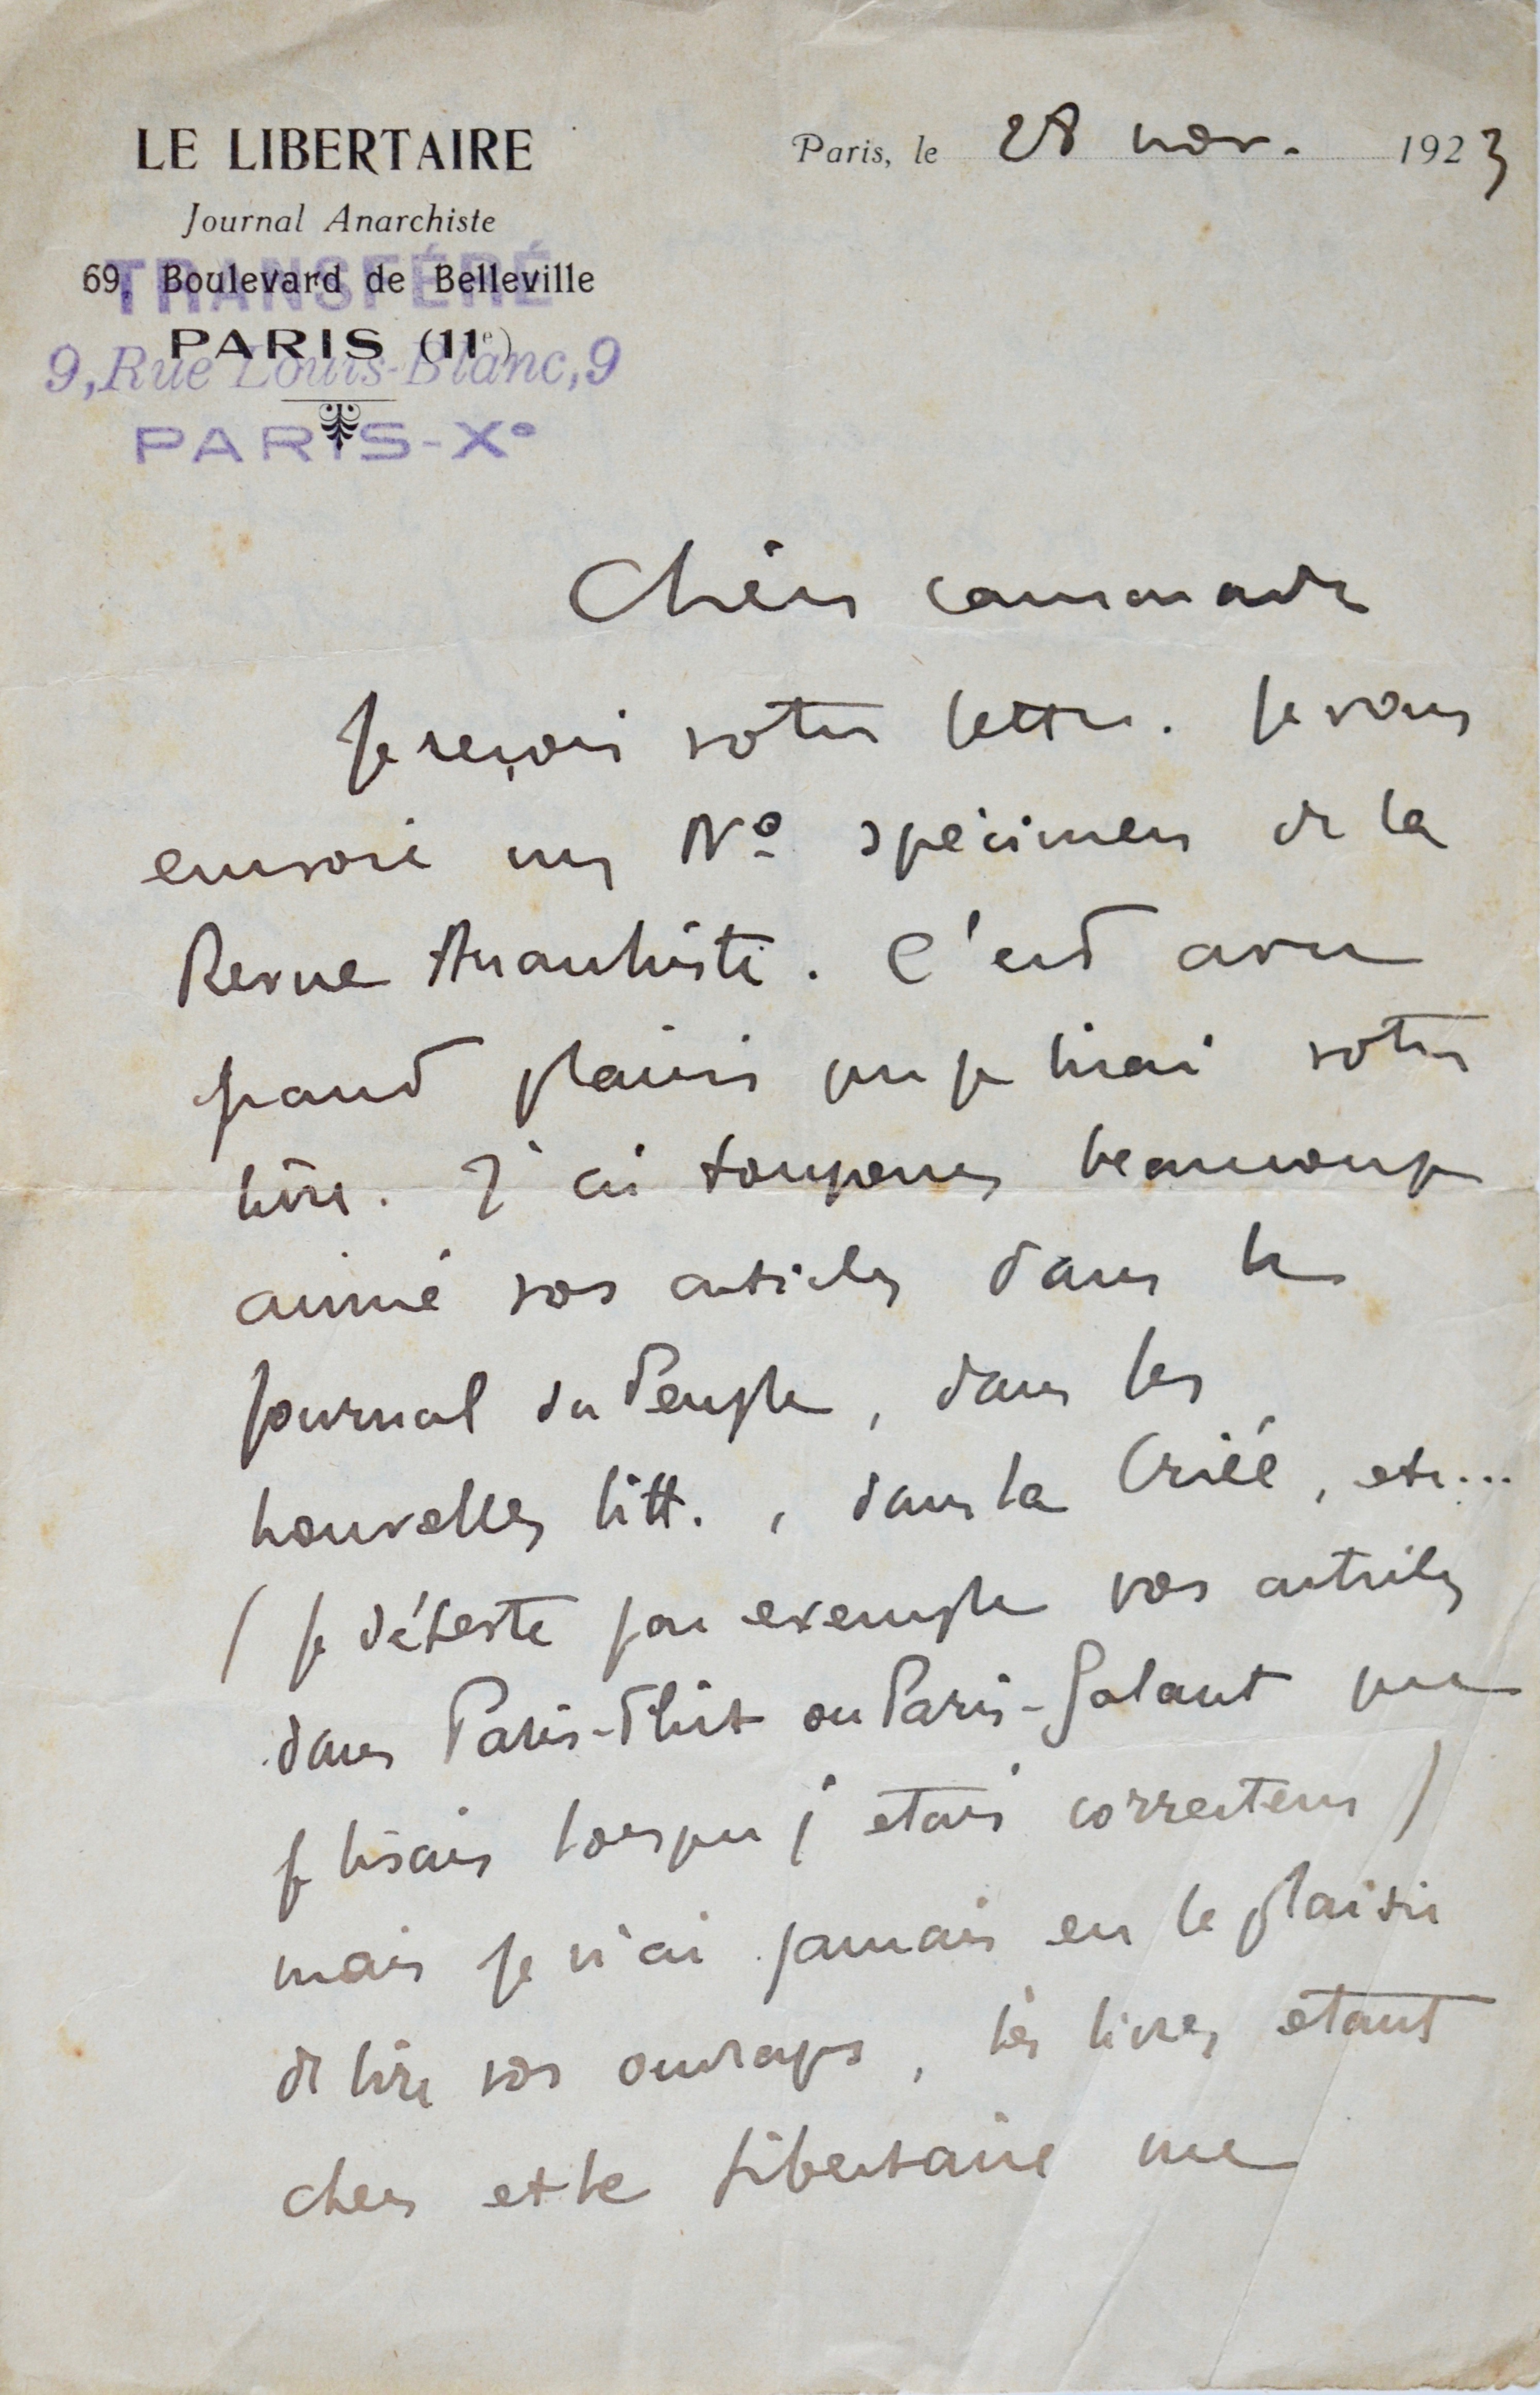 LE LIBERTAIRE
Journal Anarchiste
69, Boulevard de Belleville
TRANSFÉRÉ
PARIS (11e)
9, Rue Louis-Blanc, 9
PARIS-Xe
Paris, le 28 nov. 1923
Cher camarade
Je reçois votre lettre. Je vous
envoie un No spécimen de la
Revue Anarchiste. C'est avec
grand plaisir que je lirai votre
livre. J'ai toujours beaucoup
aimé vos articles dans le
Journal du Peuple, dans les
nouvelles litt., dans la Criée, etc...
(je déteste par exemple vos articles
dans Paris-Flirt ou Paris-Galant que
je lisais lorsque j'étais correcteur)
mais je n'ai jamais eu le plaisir
de lire vos ouvrages, les livres étant
chers et le Libertaire me